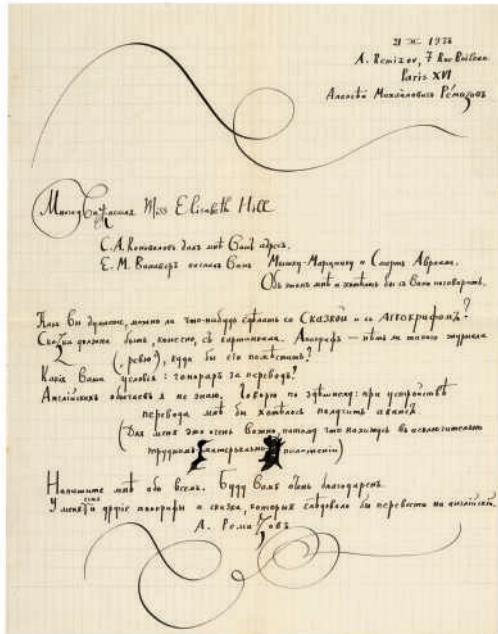 21 XI 1938
A. Remizov, 7 Rue Boileau
Paris XVI
Алексѣй Михайловичъ Ремизовъ
Многоуважаемая Miss Elisabeth Hill
С. А. Коноваловъ далъ мнѣ Вашъ адресъ.
Е. М. послала Вамъ Мышку-Морщинку и Смерть Авраама.
Объ этомъ мнѣ и хотѣлось бы съ Вами поговорить.
Какъ Вы думаете, можно ли что-нибудь сдѣлать со Сказкой и съ Апокрифомъ?
Сказка должна быть, конечно, съ картинками. Апокрифъ — нѣтъ ли такого журнала
(ревю), куда бы его помѣстить?
Какія Ваши условія: гонораръ за переводъ?
Англійскихъ обычаевъ я не знаю. Говорю по здѣшнему: при устройствѣ
перевода мнѣ бы хотѣлось получить авансъ.
(Для меня это очень важно, потому что нахожусь въ исключительно
трудномъ матерьяльно положеніи)
Напишите мнѣ обо всемъ. Буду Вамъ очень благодаренъ.
У меня есть и другіе апокрифы и сказки, которые слѣдовало бы перевести на англійскій.
А. Ремизовъ